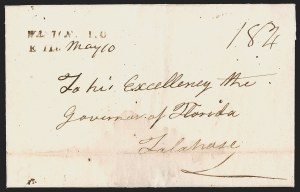 May 10
18¾
To his Excellency the
Governor of Florida
Talahase